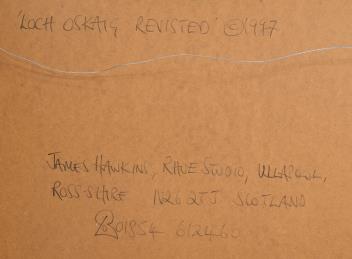 'LOCH OSKAIG REVISTED' ©1997
JAMES HAWKINS, RHUE STUDIO, ULLAPOOL,
ROSS-SHIRE IV26 2TJ SCOTLAND
01854 612460